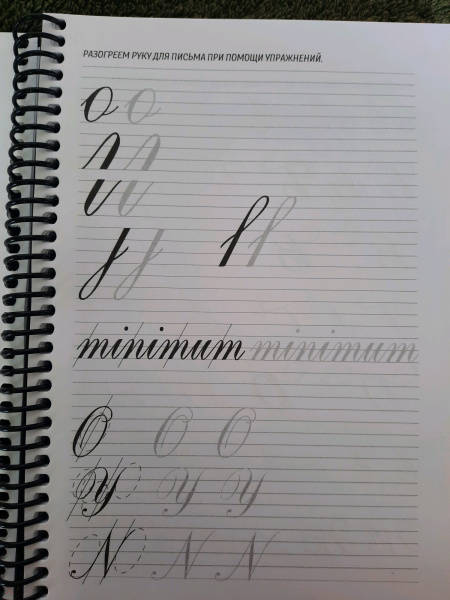 РАЗОГРЕЕМ РУКУ ДЛЯ ПИСЬМА ПРИ ПОМОЩИ УПРАЖНЕНИЙ.
o o
minimum minimum
O O O
Y Y Y
N N N